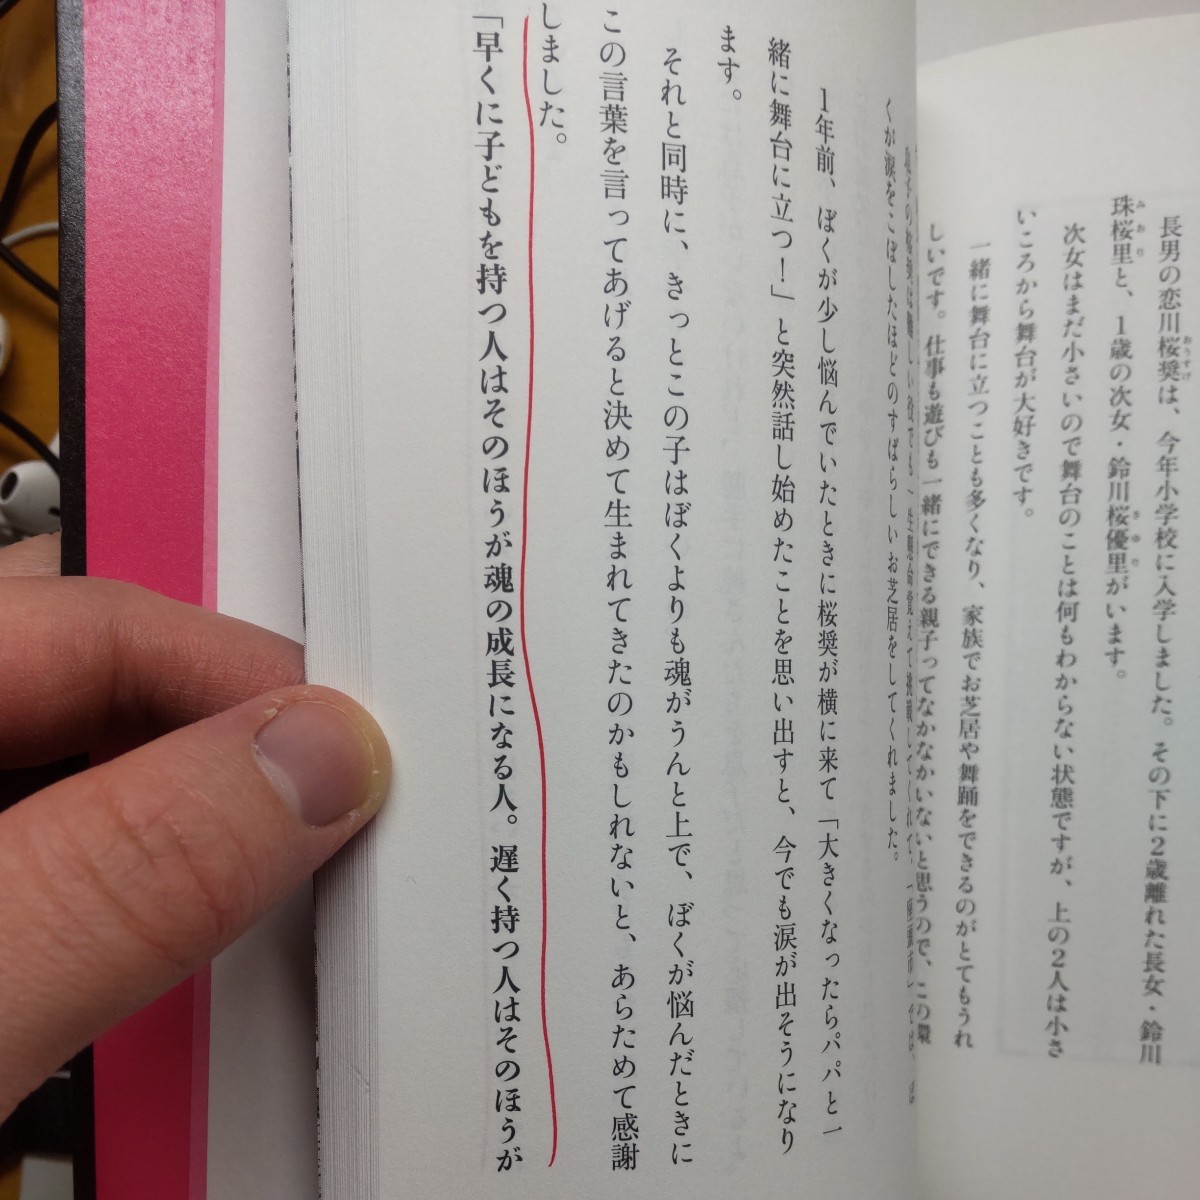 長男の恋川桜奨は、今年小学校に入学しました。その下に2歳離れた長女・鈴川
おうすけ
珠桜里と、1歳の次女・鈴川桜優里がいます。
みおり
さゆり
次女はまだ小さいので舞台のことは何もわからない状態ですが、上の2人は小さ
いころから舞台が大好きです。
一緒に舞台に立つことも多くなり、家族でお芝居や舞踊をできるのがとてもうれ
しいです。仕事も遊びも一緒にできる親子ってなかなかいないと思うので、この環
くが涙をこぼしたほどのすばらしいお芝居をしてくれました。
1年前、ぼくが少し悩んでいたときに桜奨が横に来て「大きくなったらパパと一
緒に舞台に立つ!」と突然話し始めたことを思い出すと、今でも涙が出そうになり
ます。
それと同時に、きっとこの子はぼくよりも魂がうんと上で、ぼくが悩んだときに
この言葉を言ってあげると決めて生まれてきたのかもしれないと、あらためて感謝
しました。
「早くに子どもを持つ人はそのほうが魂の成長になる人。遅く持つ人はそのほうが